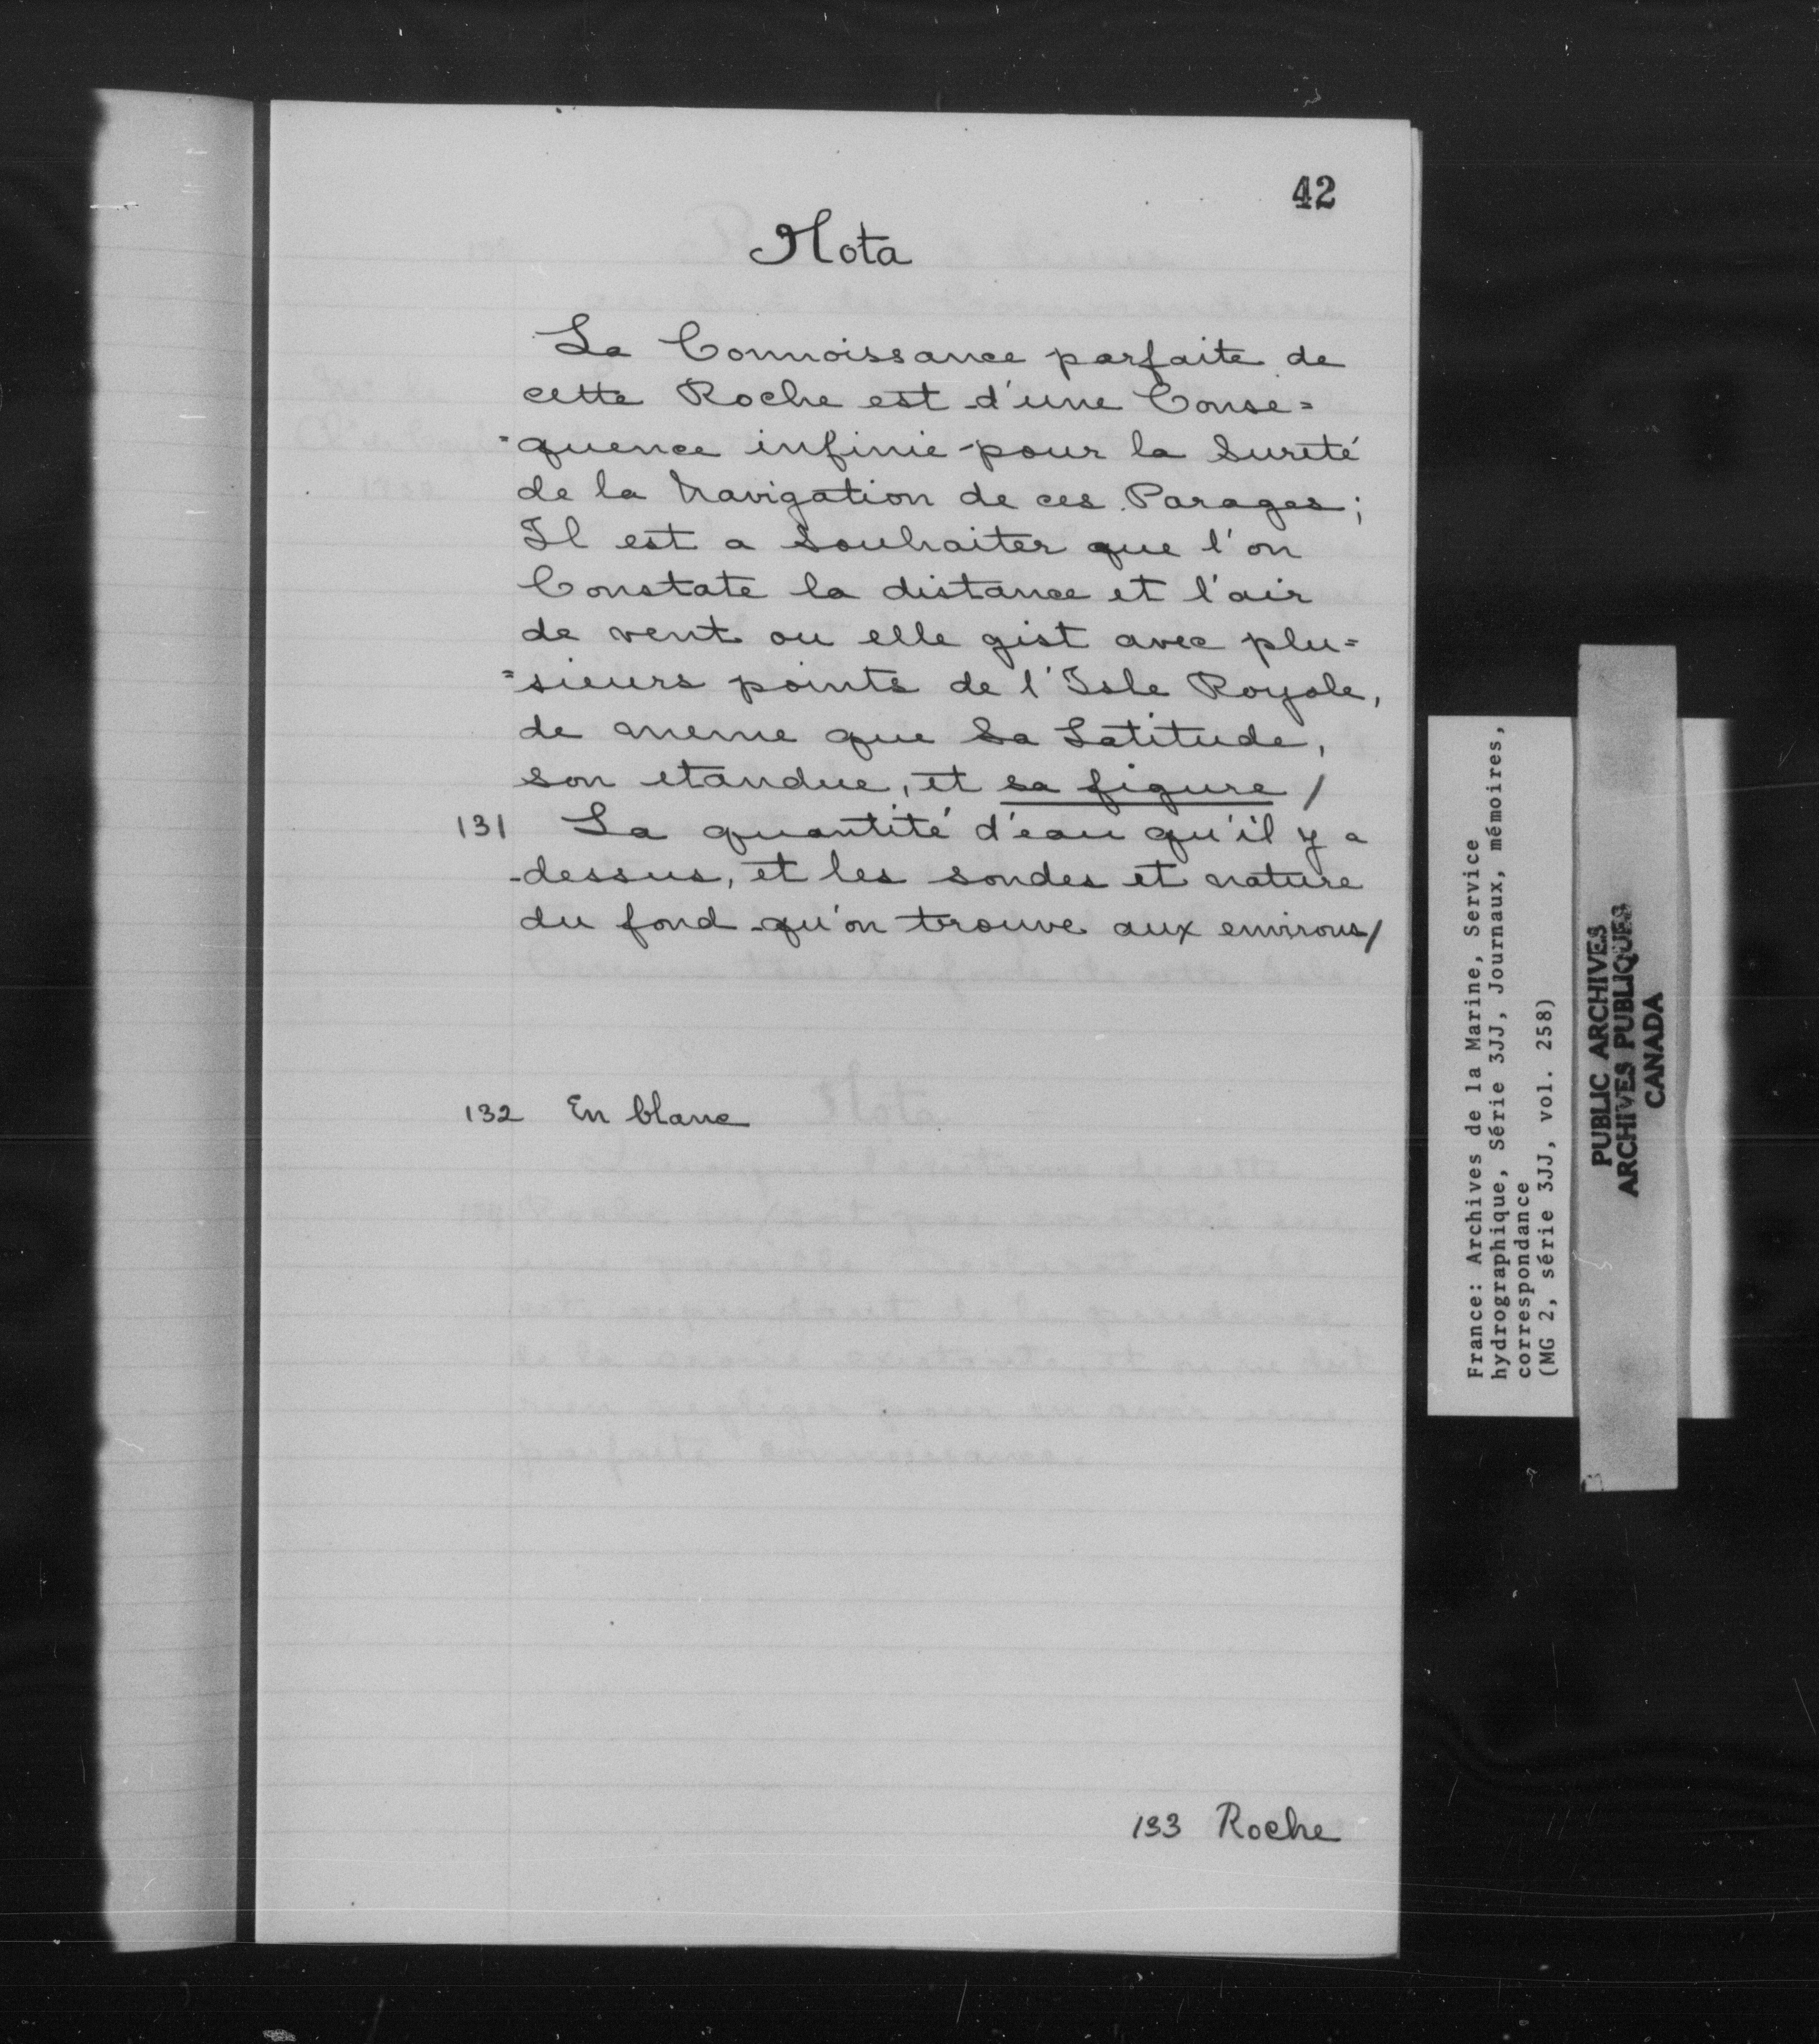 42
Nota
La Connoissance parfaite de
cette Roche est d'une Conse=
=quence infinie pour la Sureté
de la Navigation de ces Parages;
Il est a Souhaiter que l'on
Constate la distance et l'air
de vent ou elle gist avec plu=
=sieurs points de l'Isle Royale,
de meme que Sa Latitude,
son etandue, et sa figure /
131 La quantité d'eau qu'il y a
dessus, et les sondes et nature
du fond qu'on trouve aux environs/
132 En blanc
133 Roche
France: Archives de la Marine, Service
hydrographique, Série 3JJ, Journaux, mémoires,
correspondance
(MG 2, série 3JJ, vol. 258)
PUBLIC ARCHIVES
ARCHIVES PUBLIQUES
CANADA